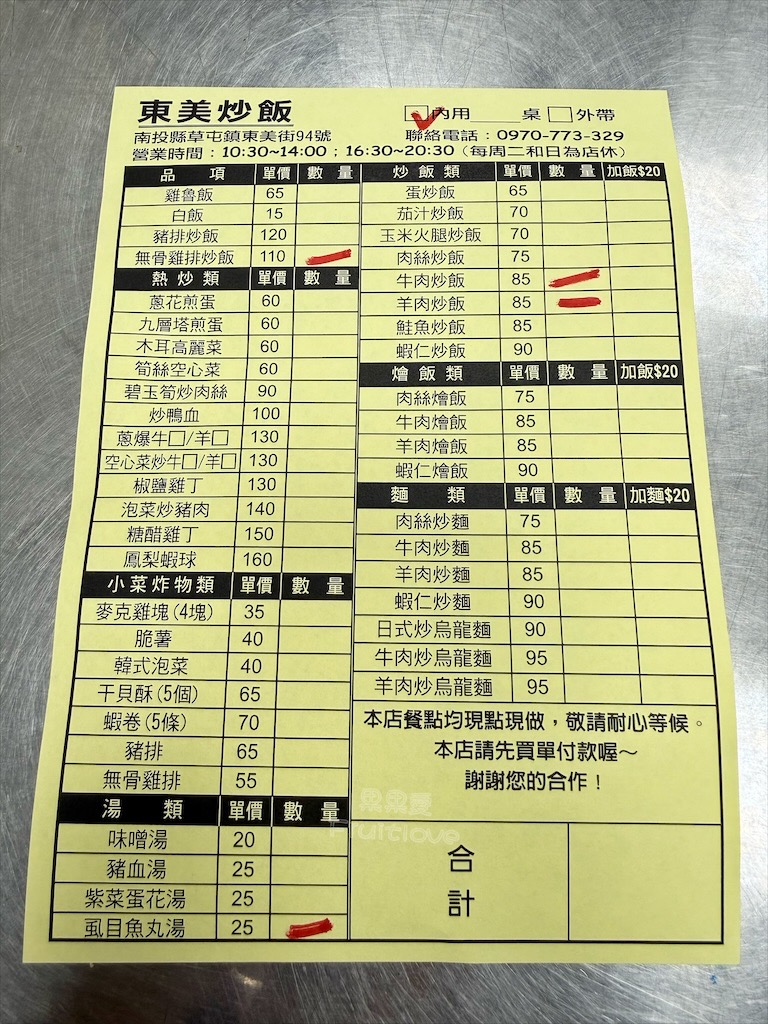 東美炒飯
☑內用____桌 □外帶
南投縣草屯鎮東美街94號
聯絡電話：0970-773-329
營業時間：10:30~14:00；16:30~20:30（每周二和日為店休）
品 項 單價 數 量
雞魯飯 65
白飯 15
豬排炒飯 120
無骨雞排炒飯 110
熱炒類 單價 數 量
蔥花煎蛋 60
九層塔煎蛋 60
木耳高麗菜 60
筍絲空心菜 60
碧玉筍炒肉絲 90
炒鴨血 100
蔥爆牛□/羊□ 130
空心菜炒牛□/羊□ 130
椒鹽雞丁 130
泡菜炒豬肉 140
糖醋雞丁 150
鳳梨蝦球 160
小菜炸物類 單價 數 量
麥克雞塊(4塊) 35
脆薯 40
韓式泡菜 40
干貝酥(5個) 65
蝦卷(5條) 70
豬排 65
無骨雞排 55
湯 類 單價 數 量
味噌湯 20
豬血湯 25
紫菜蛋花湯 25
虱目魚丸湯 25
炒飯類 單價 數 量 加飯$20
蛋炒飯 65
茄汁炒飯 70
玉米火腿炒飯 70
肉絲炒飯 75
牛肉炒飯 85
羊肉炒飯 85
鮭魚炒飯 85
蝦仁炒飯 90
燴飯類 單價 數 量 加飯$20
肉絲燴飯 75
牛肉燴飯 85
羊肉燴飯 85
蝦仁燴飯 90
麵 類 單價 數 量 加麵$20
肉絲炒麵 75
牛肉炒麵 85
羊肉炒麵 85
蝦仁炒麵 90
日式炒烏龍麵 90
牛肉炒烏龍麵 95
羊肉炒烏龍麵 95
本店餐點均現點現做，敬請耐心等候。
本店請先買單付款喔～
謝謝您的合作！
合計
果果愛
Fruitlove